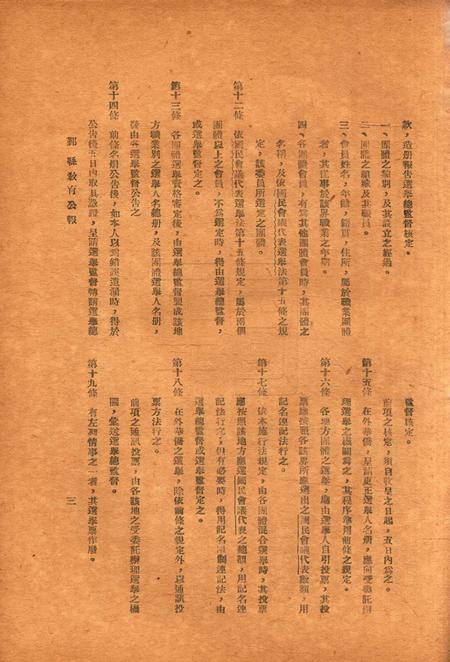 款，造册報告選舉總監督核定。
一、團體之種別，及其設立之經過。
二、團體之組織及其職員。
三、會員姓名，年齡，籍貫，住所，屬於職業團體
者，其從事於該界職業之年期。
四、各團體會員，有為其他團體會員時，其團體之
名稱，及依國民會議代表選舉法第十五條之規
定，該會員所選定之團體。
第十二條 依國民會議代表選舉法第十五條規定，屬於兩個
團體以上之會員，不為選定時，得由選舉總監督，
或選舉監督定之。
第十三條 各團體選舉資格審定後，由選舉總監督製成該地
方職業別之選舉人名總册，及該團體選舉人名册，
發由各選舉監督公告之
第十四條 前條名册公告後，如本人以為錯誤遺漏時，得於
公告後五日內取具證據，呈請選舉監督轉請選舉總
鄞縣教育公報
監督核定。
前項之核定，須自收呈之日起，五日內為之。
第十五條 在外華僑，呈請更正選舉人名册，應向受委託辦
理選舉之機關為之，其程序準用前條之規定。
第十六條 各地方團體之選舉，應由選舉人自引投票，其投
票應按照各該界所應選出之國民會議代表數額，用
記名連記法行之。
第十七條 依本施行法規定，由各團體混合選舉時，其投票
應按照該地方應選國民會議代表之總額，用記名連
記法行之，但有必要時，得用記名限制連記法，由
選舉總監督或選舉監督定之。
第十八條 在外華僑之選舉，除依前條之規定外，以通訊投
票方法行之。
前項之通訊投票，由各該地之受委託辦理選舉之機
關，彙送選舉總監督。
第十九條 有左列情事之一者，其選舉票作廢。
三